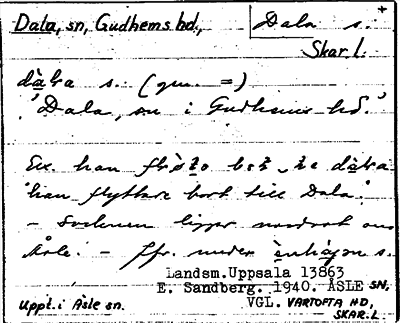 Dala, sn, Gudhems hd., Dala s.
Skar. l.
dàla s. (gm. =)
'Dala, sn i Gudhems hd.'
Ex. han dàla
'han flyttade bort till Dala'.
– Socknen ligger nordost om
Åsle. – Jfr. under s.
Landsm. Uppsala 13863
E. Sandberg. 1940. ÅSLE SN,
Uppt. i Åsle sn. VGL. VARTOFTA HD,
SKAR. L